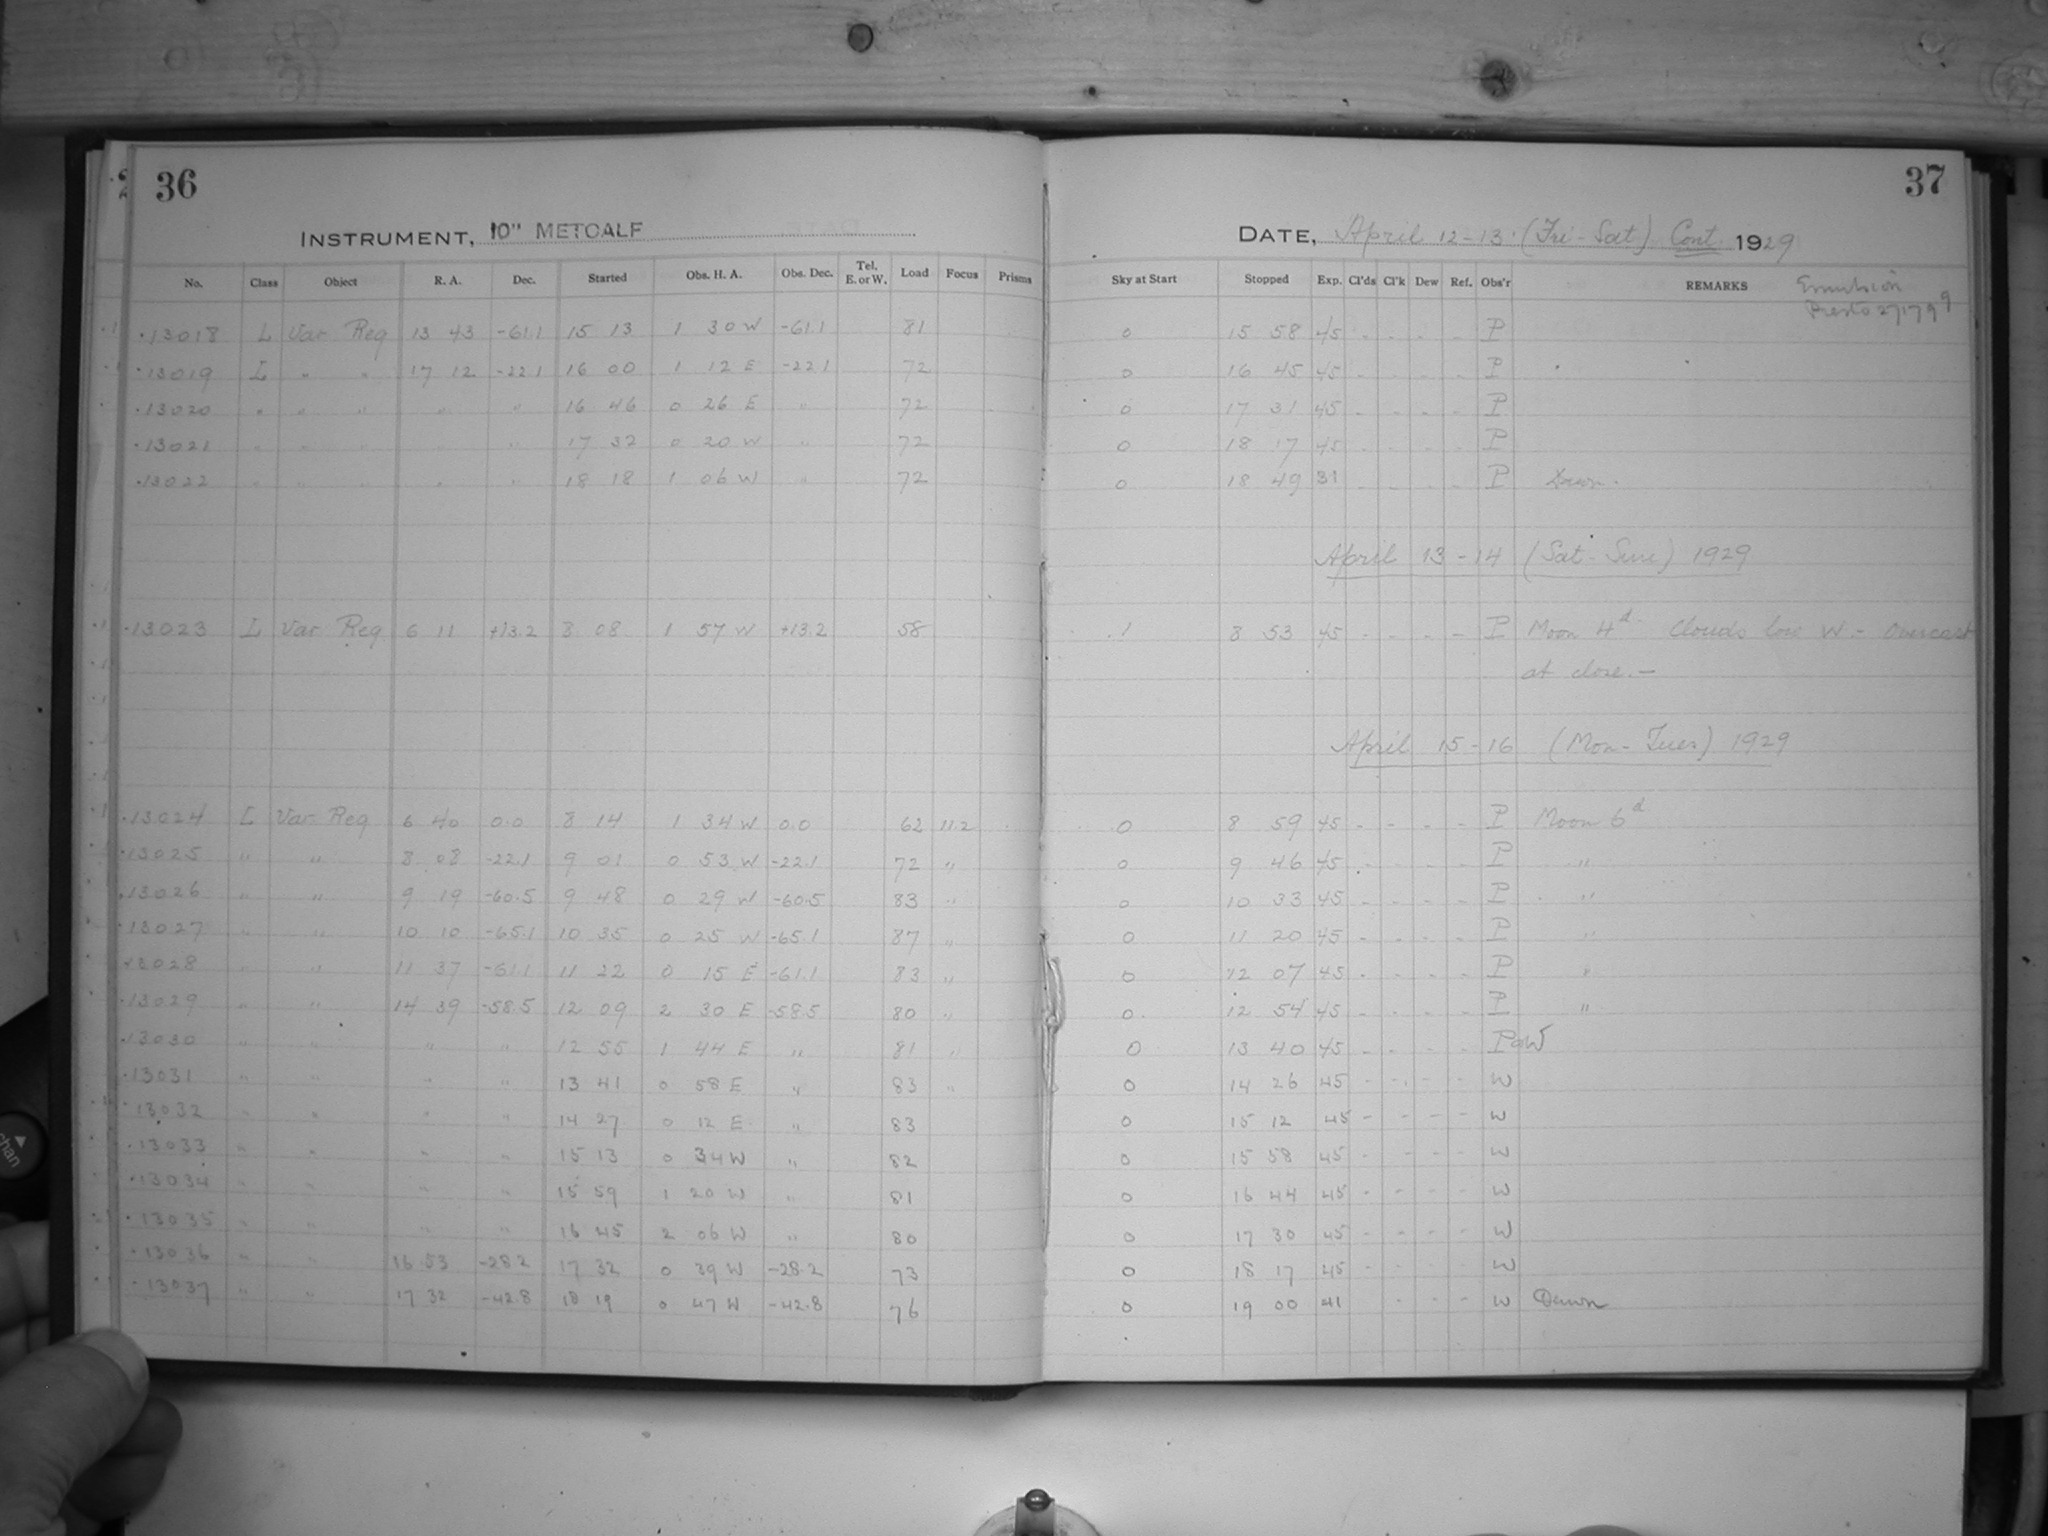 36
INSTRUMENT, 10" METCALF
No. Class Object R. A. Dec. Started Obs. H. A. Obs. Dec. Tel. E. or W. Load Focus Prisms
13018 L Var Reg 13 43 -61.1 15 13 1 30 W -61.1 81
13019 L " " 17 12 -22.1 16 00 1 12 E -22.1 72
13020 " " " " " 16 46 0 26 E " 72
13021 " " " " " 17 32 0 20 W " 72
13022 " " " " " 18 18 1 06 W " 72
13023 L Var Reg 6 11 +13.2 8 08 1 57 W +13.2 58
13024 L Var Reg 6 40 0.0 8 14 1 34 W 0.0 62 11.2
13025 " " 8 08 -22.1 9 01 0 53 W -22.1 72 "
13026 " " 9 19 -60.5 9 48 0 29 W -60.5 83 "
13027 " " 10 10 -65.1 10 35 0 25 W -65.1 87 "
13028 " " 11 37 -61.1 11 22 0 15 E -61.1 83 "
13029 " " 14 39 -58.5 12 09 2 30 E -58.5 80 "
13030 " " " " 12 55 1 44 E " 81 "
13031 " " " " 13 41 0 58 E " 83 "
13032 " " " " 14 27 0 12 E " 83
13033 " " " " 15 13 0 34 W " 82
13034 " " " " 15 59 1 20 W " 81
13035 " " " " 16 45 2 06 W " 80
13036 " " 16 53 -28.2 17 32 0 39 W -28.2 73
13037 " " 17 32 -42.8 18 19 0 47 W -42.8 76
37
DATE, April 12-13 (Fri-Sat) Cont. 1929
Sky at Start Stopped Exp. Cl'ds Cl'k Dew Ref. Obs'r REMARKS Emulsion
Presto 27179
0 15 58 45 - - - - P
0 16 45 45 - - - - P
0 17 31 45 - - - - P
0 18 17 45 - - - - P
0 18 49 31 - - - - P Dawn.
April 13-14 (Sat-Sun) 1929
1 8 53 45 - - - - P Moon 4d. Clouds low W. - Overcast
at close. -
April 15-16 (Mon-Tues) 1929
0 8 59 45 - - - - P Moon 6d
0 9 46 45 - - - - P "
0 10 33 45 - - - - P "
0 11 20 45 - - - - P "
0 12 07 45 - - - - P "
0 12 54 45 - - - - P "
0 13 40 45 - - - - P W
0 14 26 45 - - - - W
0 15 12 45 - - - - W
0 15 58 45 - - - - W
0 16 44 45 - - - - W
0 17 30 45 - - - - W
0 18 17 45 - - - - W
0 19 00 41 - - - W Dawn